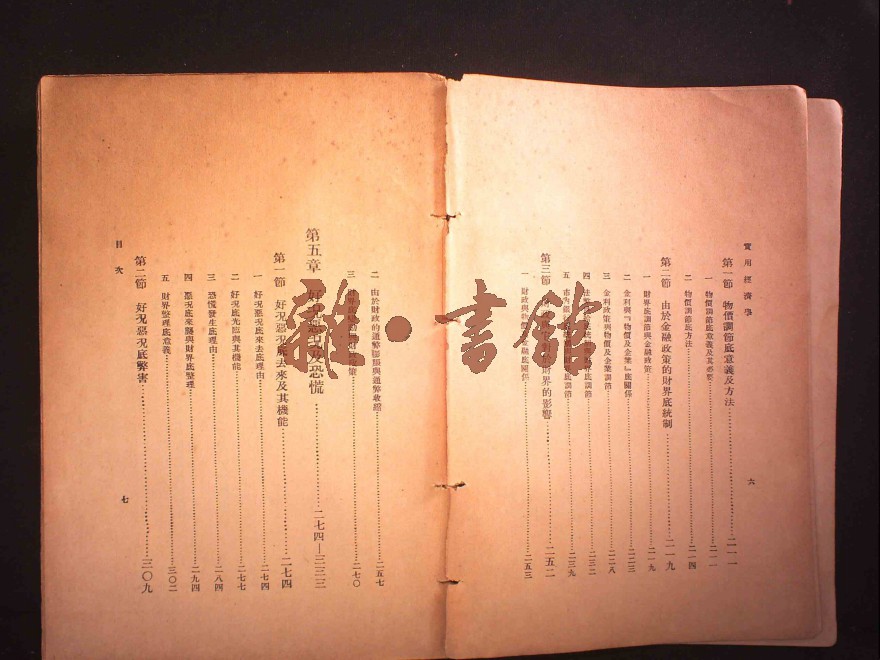 實用經濟學
第一節 物價調節底意義及方法……二一一
一 物價調節底意義及其必要……二一一
二 物價調節底方法……二一四
第二節 由於金融政策的財界底統制……二一九
一 財界底調節與金融政策……二一九
二 金利與『物價及企業』底關係……二二三
三 金利政策與物價及企業調節……二二八
四 界底調節……二三二
五 市 底調節……二三九
第三節 財界的影響……二五二
一 財政與物 金融底關係……二五三
六
二 由於財政的通弊膨脹與通弊收縮……二五七
三 財界 策……二七〇
第五章 好況惡況及恐慌……二七四—三三三
第一節 好況惡況底去來及其機能……二七四
一 好況惡況底來去底理由……二七四
二 好況底光臨與其機能……二七七
三 恐慌發生底理由……二八四
四 惡況底來襲與財界底整理……二九四
五 財界整理底意義……三〇二
第二節 好況惡況底弊害……三〇九
目次
七
雜·書館